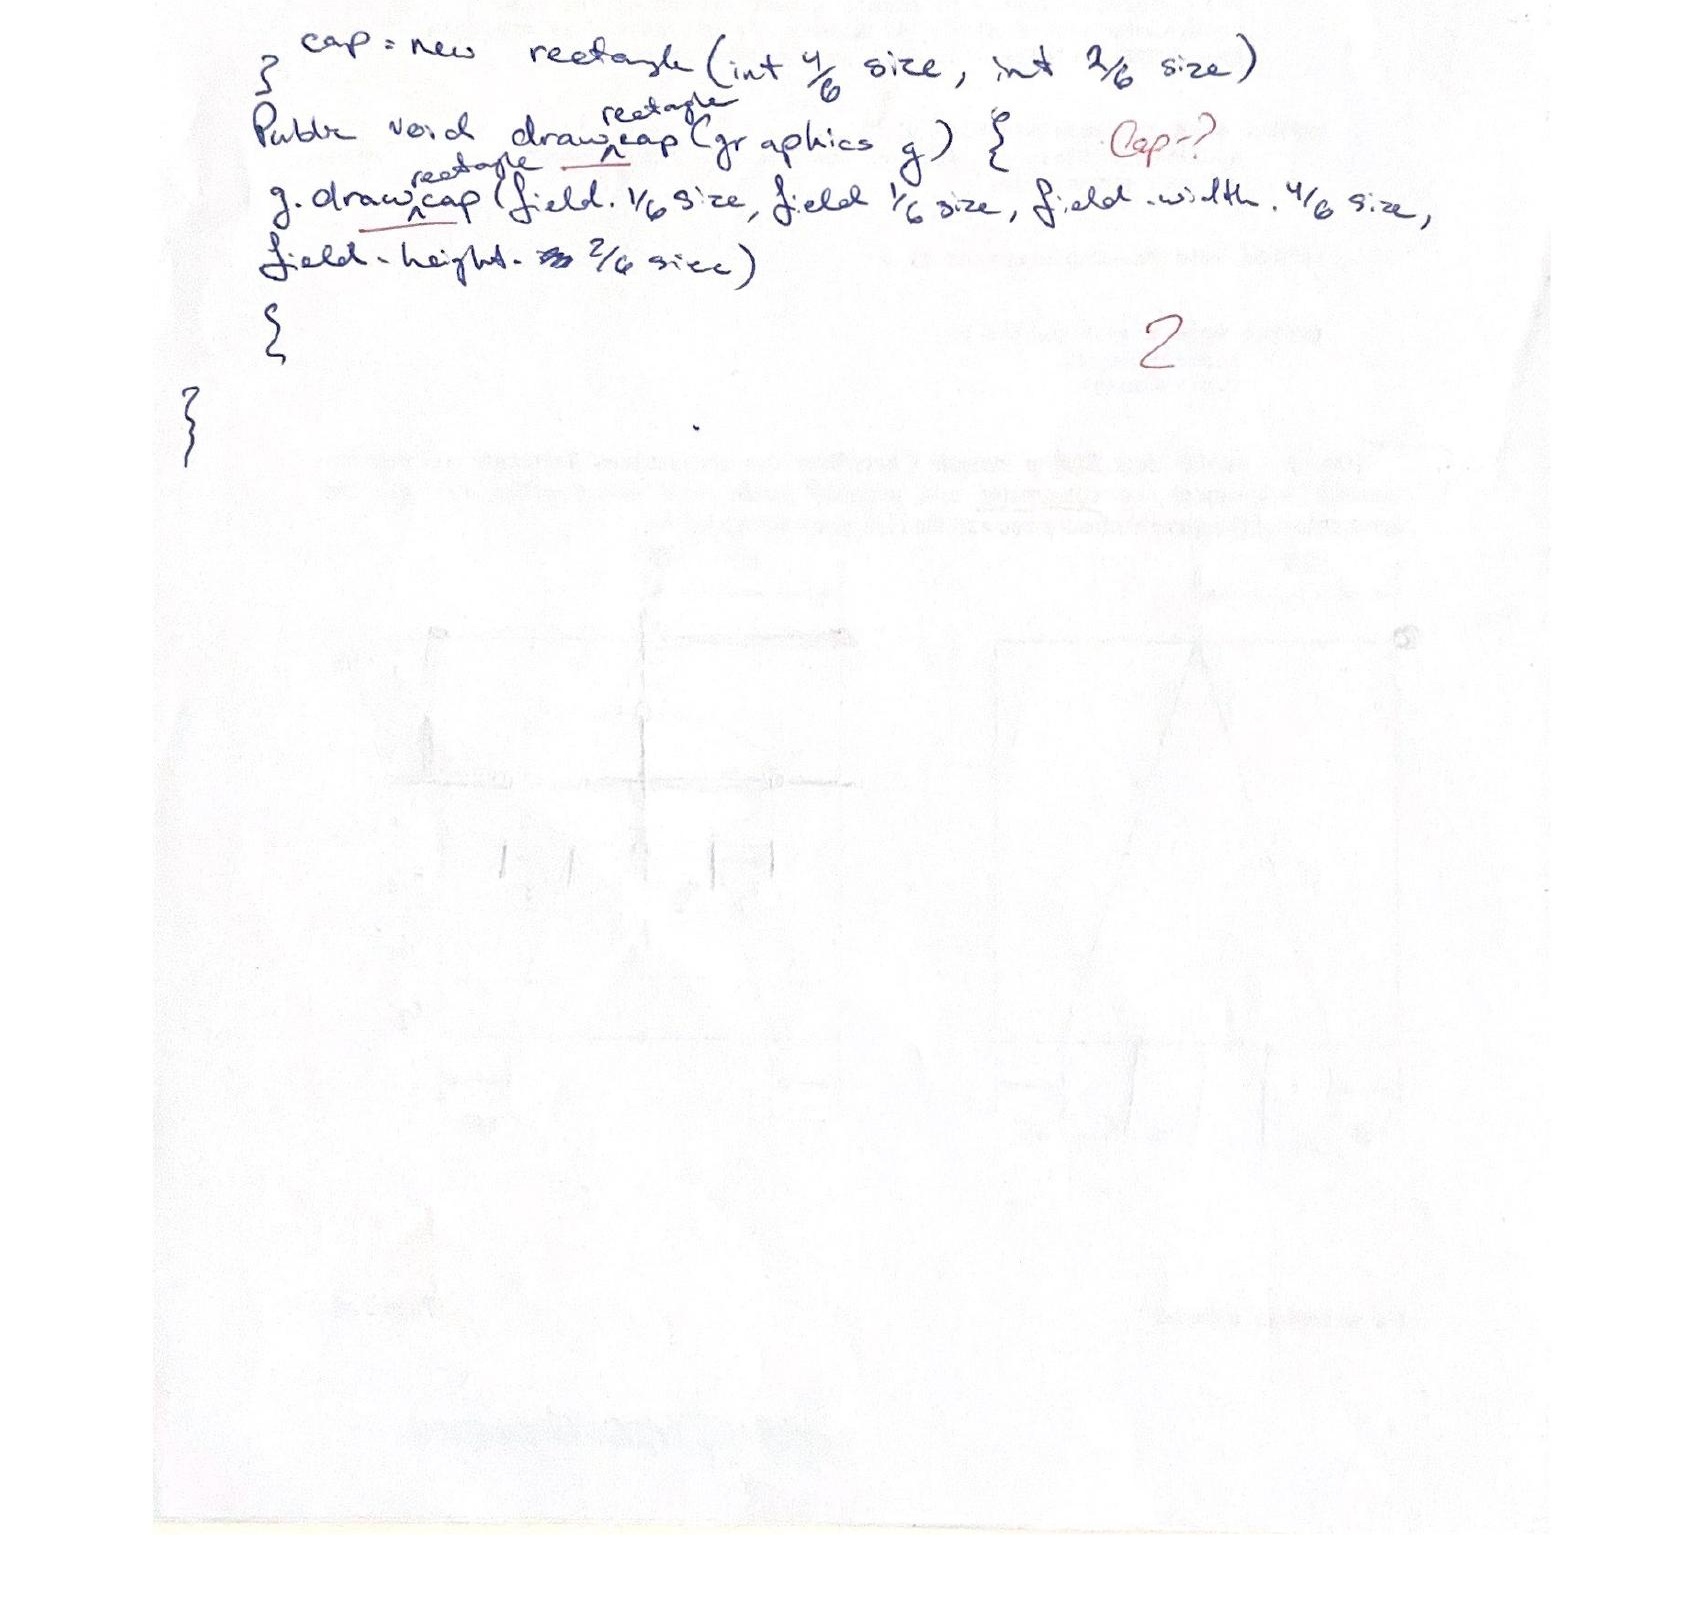 cap = new rectangle (int 4/6 size, int 2/6 size)
}
rectagle
Public void draw cap (graphics g) { Cap-?
rectagle
g. draw cap (field. 1/6 size, field 1/6 size, field. width. 4/6 size,
field. height. 2/6 size)
{
2
}